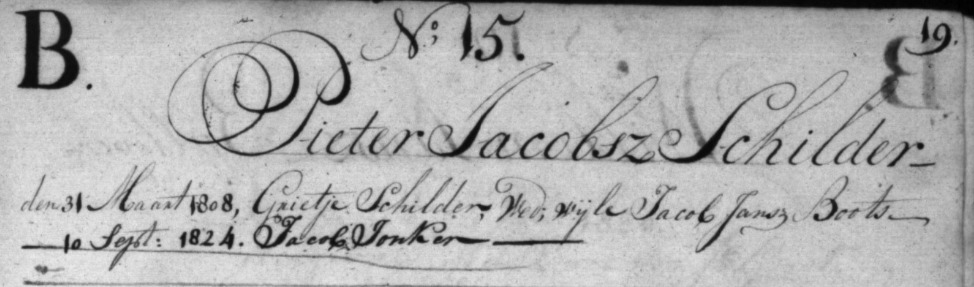 B. No: 15. 19.
Pieter Jacobsz Schilder
den 31 Maart 1808, Grietje Schilder, Wed: wijle Jacob Jansz Boots
10 Sept: 1824. Jacob Jonker